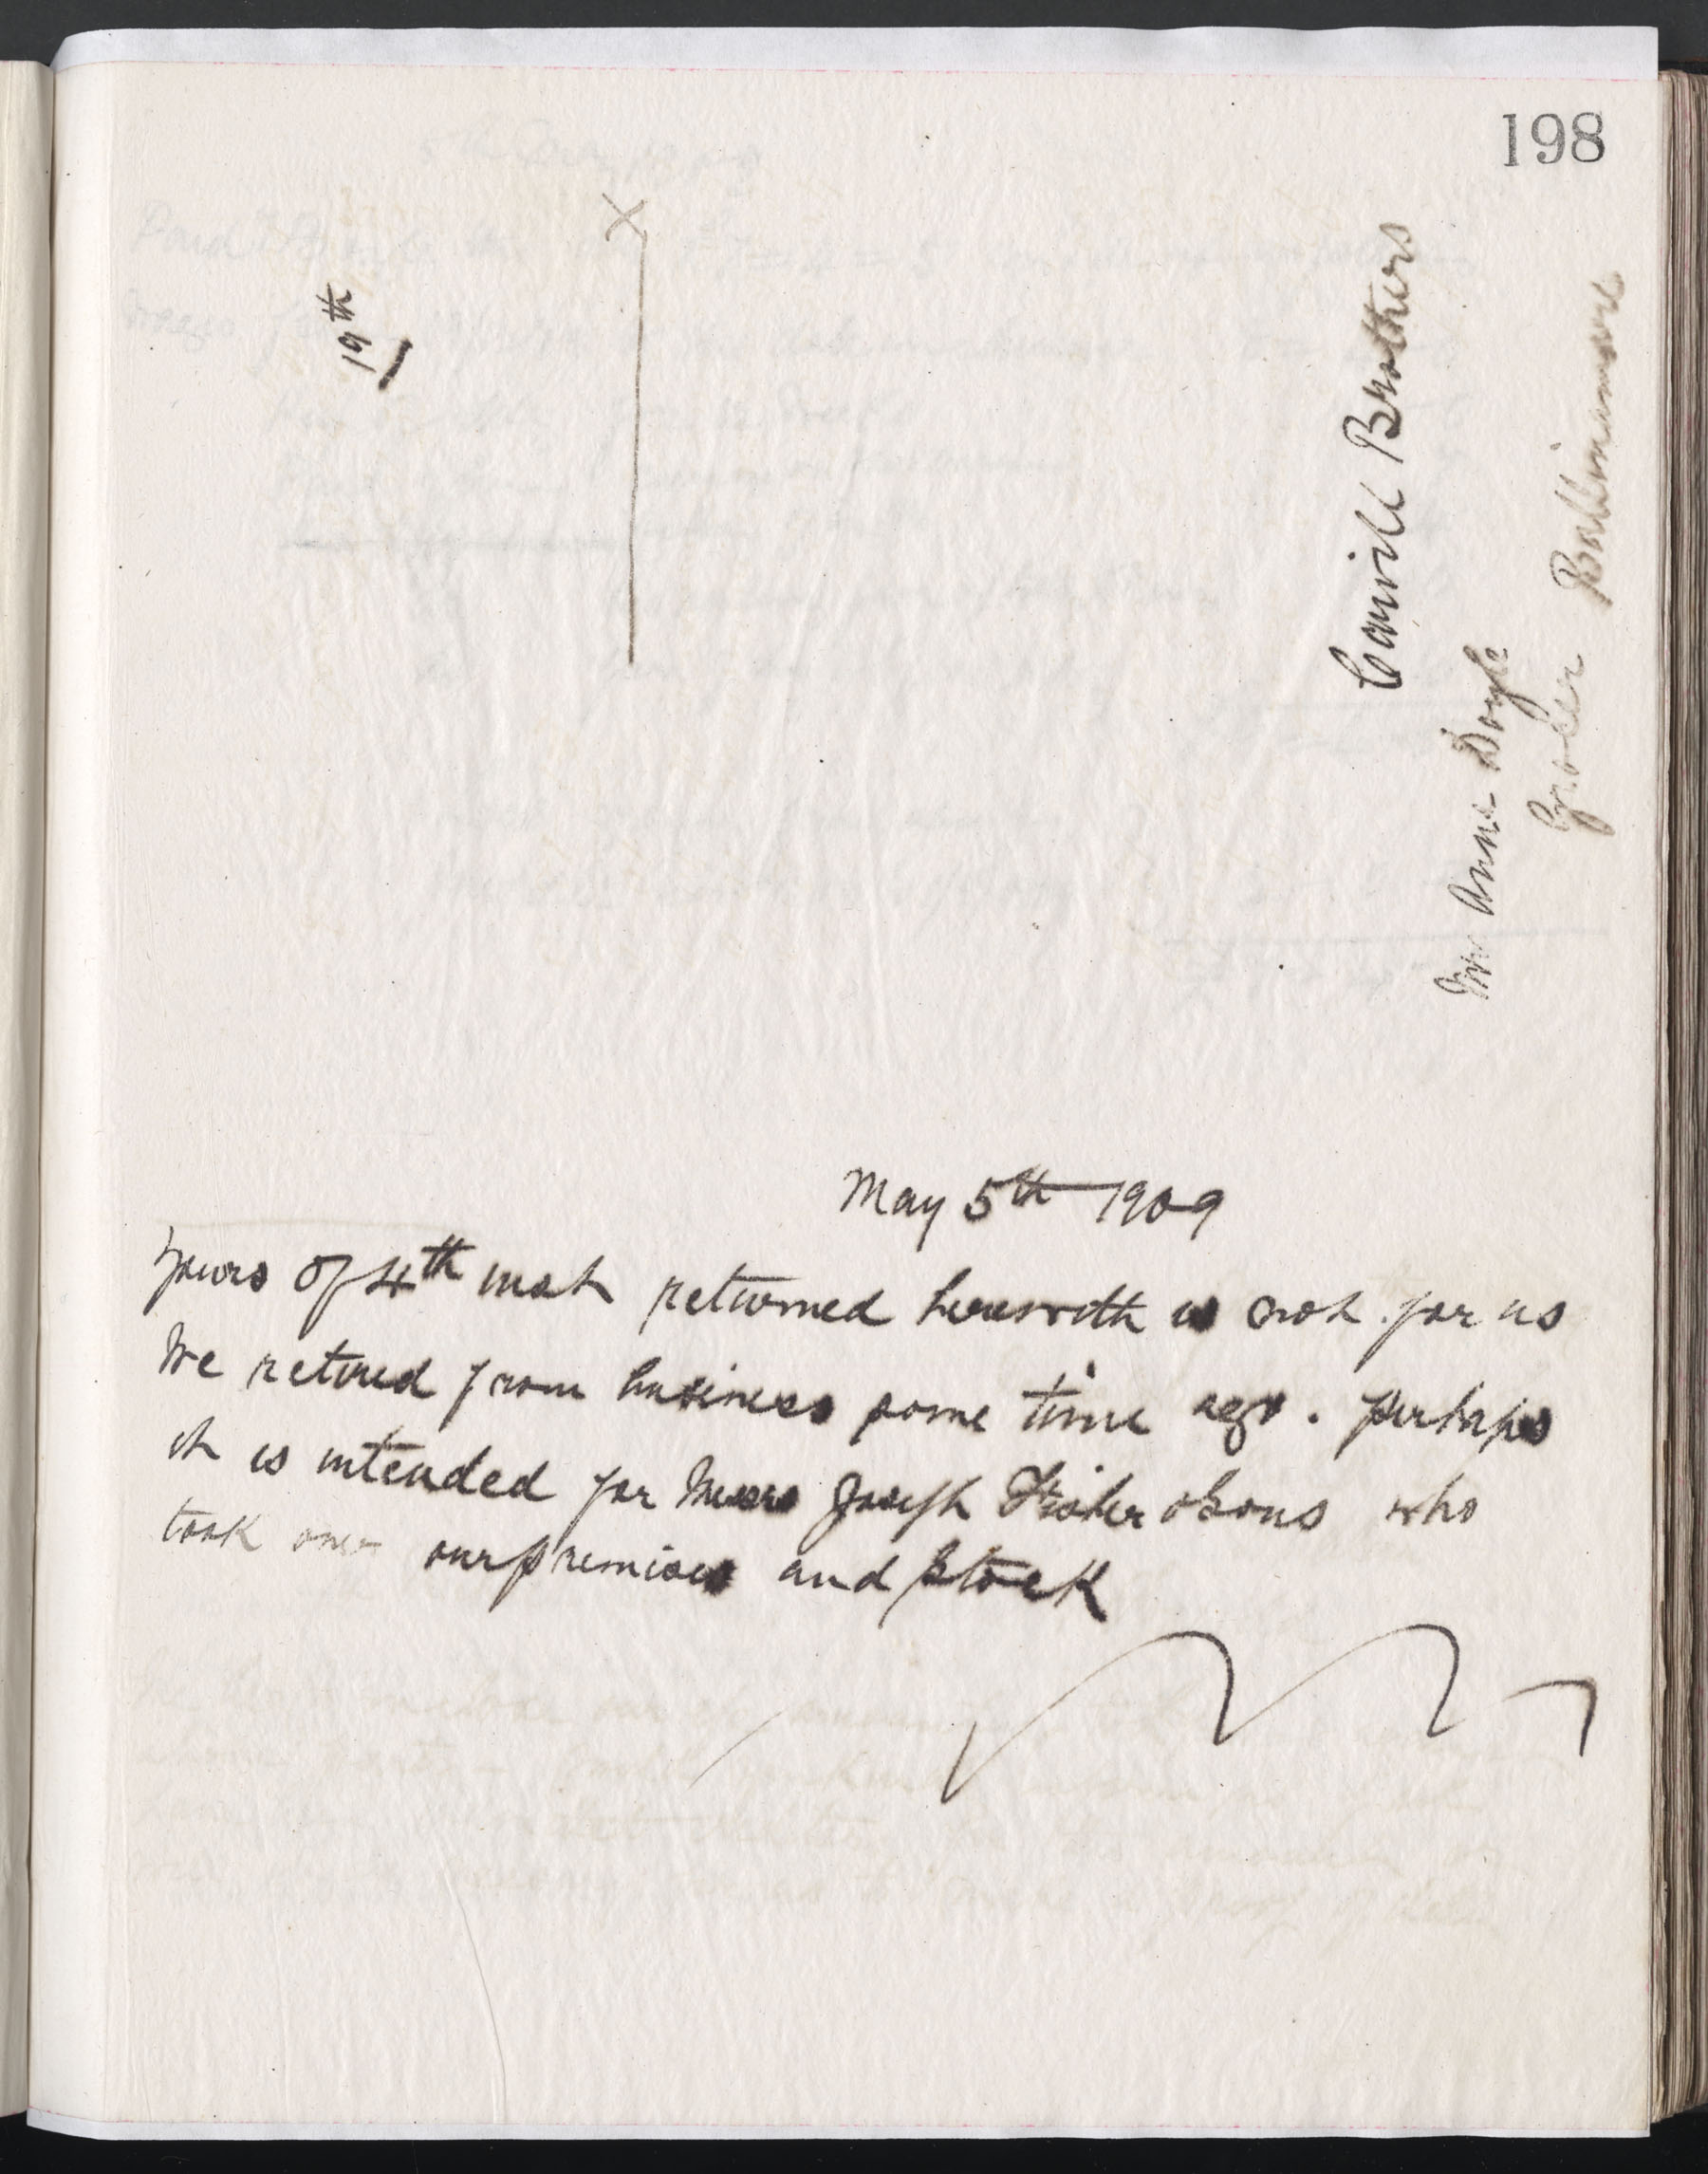 198
19th
Carvill Brothers
Mrs Anne Doyle
Grocer Ballinamore
May 5th 1909
Yours of 4th inst returned herewith is not for us
We retired from business some time ago. perhaps
it is intended for Messrs Joseph Fisher & Sons who
took over our premises and stock